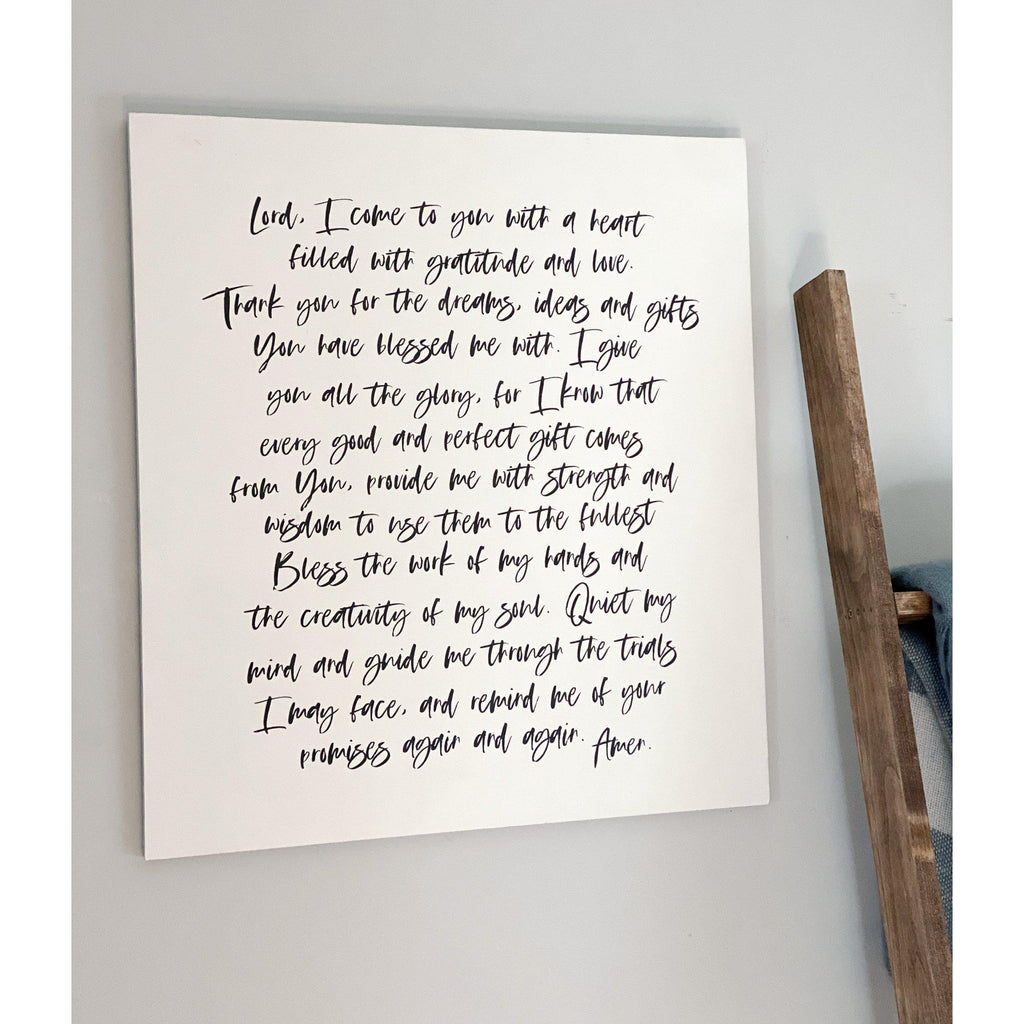 Lord, I come to you with a heart
filled with gratitude and love.
Thank you for the dreams, ideas and gifts
You have blessed me with. I give
you all the glory, for I know that
every good and perfect gift comes
from You, provide me with strength and
wisdom to use them to the fullest
Bless the work of my hands and
the creativity of my soul. Quiet my
mind and guide me through the trials
I may face, and remind me of your
promises again and again. Amen.